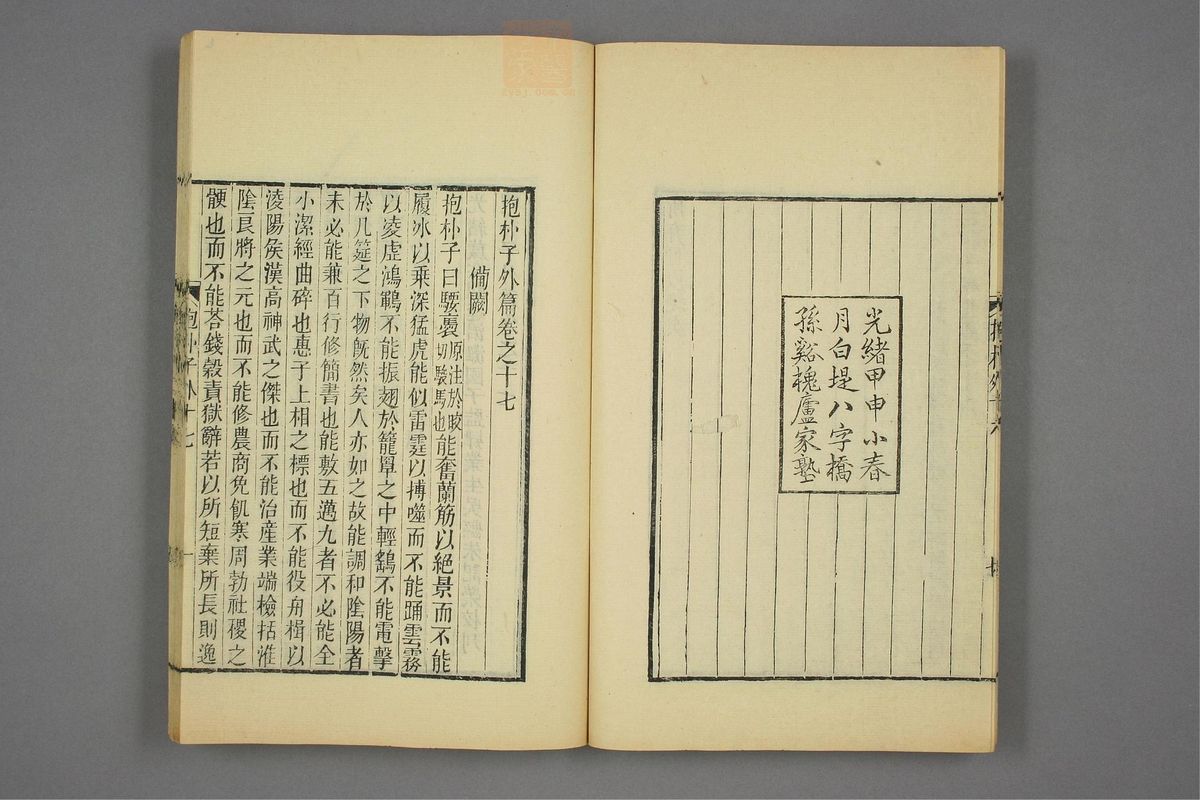 光緒甲申小春
月白堤八字橋
孫谿槐廬家塾
抱朴子外篇卷之十七
備闕
抱朴子曰騕褭原注於皎切駿馬也能奮蘭筋以絕景而不能
履冰以乘深猛虎能似雷霆以搏噬而不能踊雲霧
以凌虛鴻鶤不能振翅於籠罩之中輕鷂不能電擊
於几筵之下物旣然矣人亦如之故能調和陰陽者
未必能兼百行修簡書也能敷五邁九者不必能全
小潔經曲碎也惠子上相之標也而不能役舟楫以
淩陽侯漢高神武之傑也而不能治產業端檢括淮
陰良將之元也而不能修農商免飢寒周勃社稷之
骾也而不能荅錢穀責獄辭若以所短棄所長則逸
抱朴子外十七 一